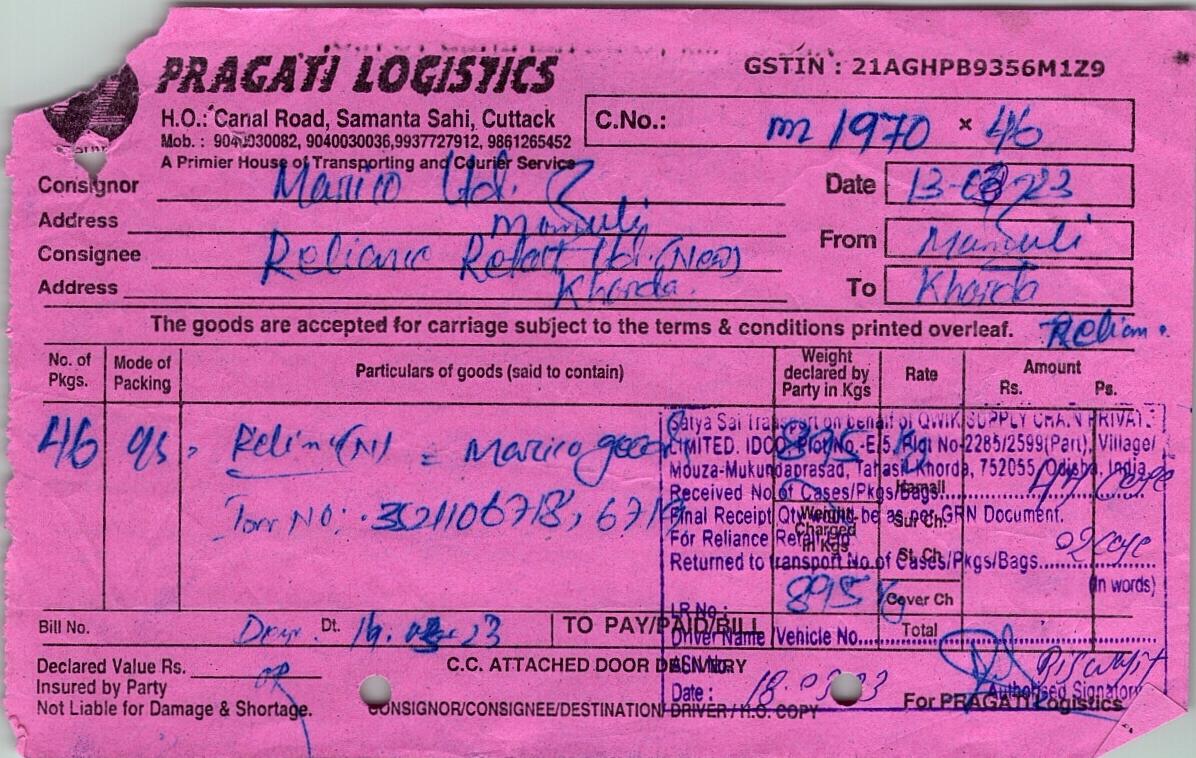 PRAGATI LOGISTICS
GSTIN : 21AGHPB9356M1Z9
H.O.: Canal Road, Samanta Sahi, Cuttack
Mob. : 9040030082, 9040030036,9937727912, 9861265452
A Primier House of Transporting and Courier Service
C.No.: m 1970 x 46
Consignor Marico Ltd.
Date 13-03-23
Address
From
Consignee Reliance Retail Ltd. (New)
Address Khorda.
To Khorda
The goods are accepted for carriage subject to the terms & conditions printed overleaf.
No. of Pkgs. Mode of Packing Particulars of goods (said to contain) Weight declared by Party in Kgs Rate Amount Rs. Ps.
46 (N) = Marico
Satya Sai Transport on behalf of QWIK SUPPLY CHAIN PRIVATE
LIMITED. IDCO Plot No.-E/5, Plot No-2285/2599(Part), Village/
Mouza-Mukundaprasad, Tahasil-Khorda, 752055, Odisha, India
Hamali
Received No of Cases/Pkgs/Bags 44
Weight Charged in Kgs
Final Receipt Qty would be as per GRN Document.
Sur Ch.
For Reliance Retail Ltd
St. Ch
Returned to transport No of Cases/Pkgs/Bags 02
(in words)
895 Kg
Cover Ch
LR No :
Bill No. Dt. TO PAY/PAID/BILL
Driver Name /Vehicle No. Total
Declared Value Rs.
C.C. ATTACHED DOOR DELIVERY
Insured by Party
ASN No.
Date : 18.03.23
Authorised Signatory
Not Liable for Damage & Shortage.
CONSIGNOR/CONSIGNEE/DESTINATION/DRIVER / H.O. COPY
For PRAGATI Logistics